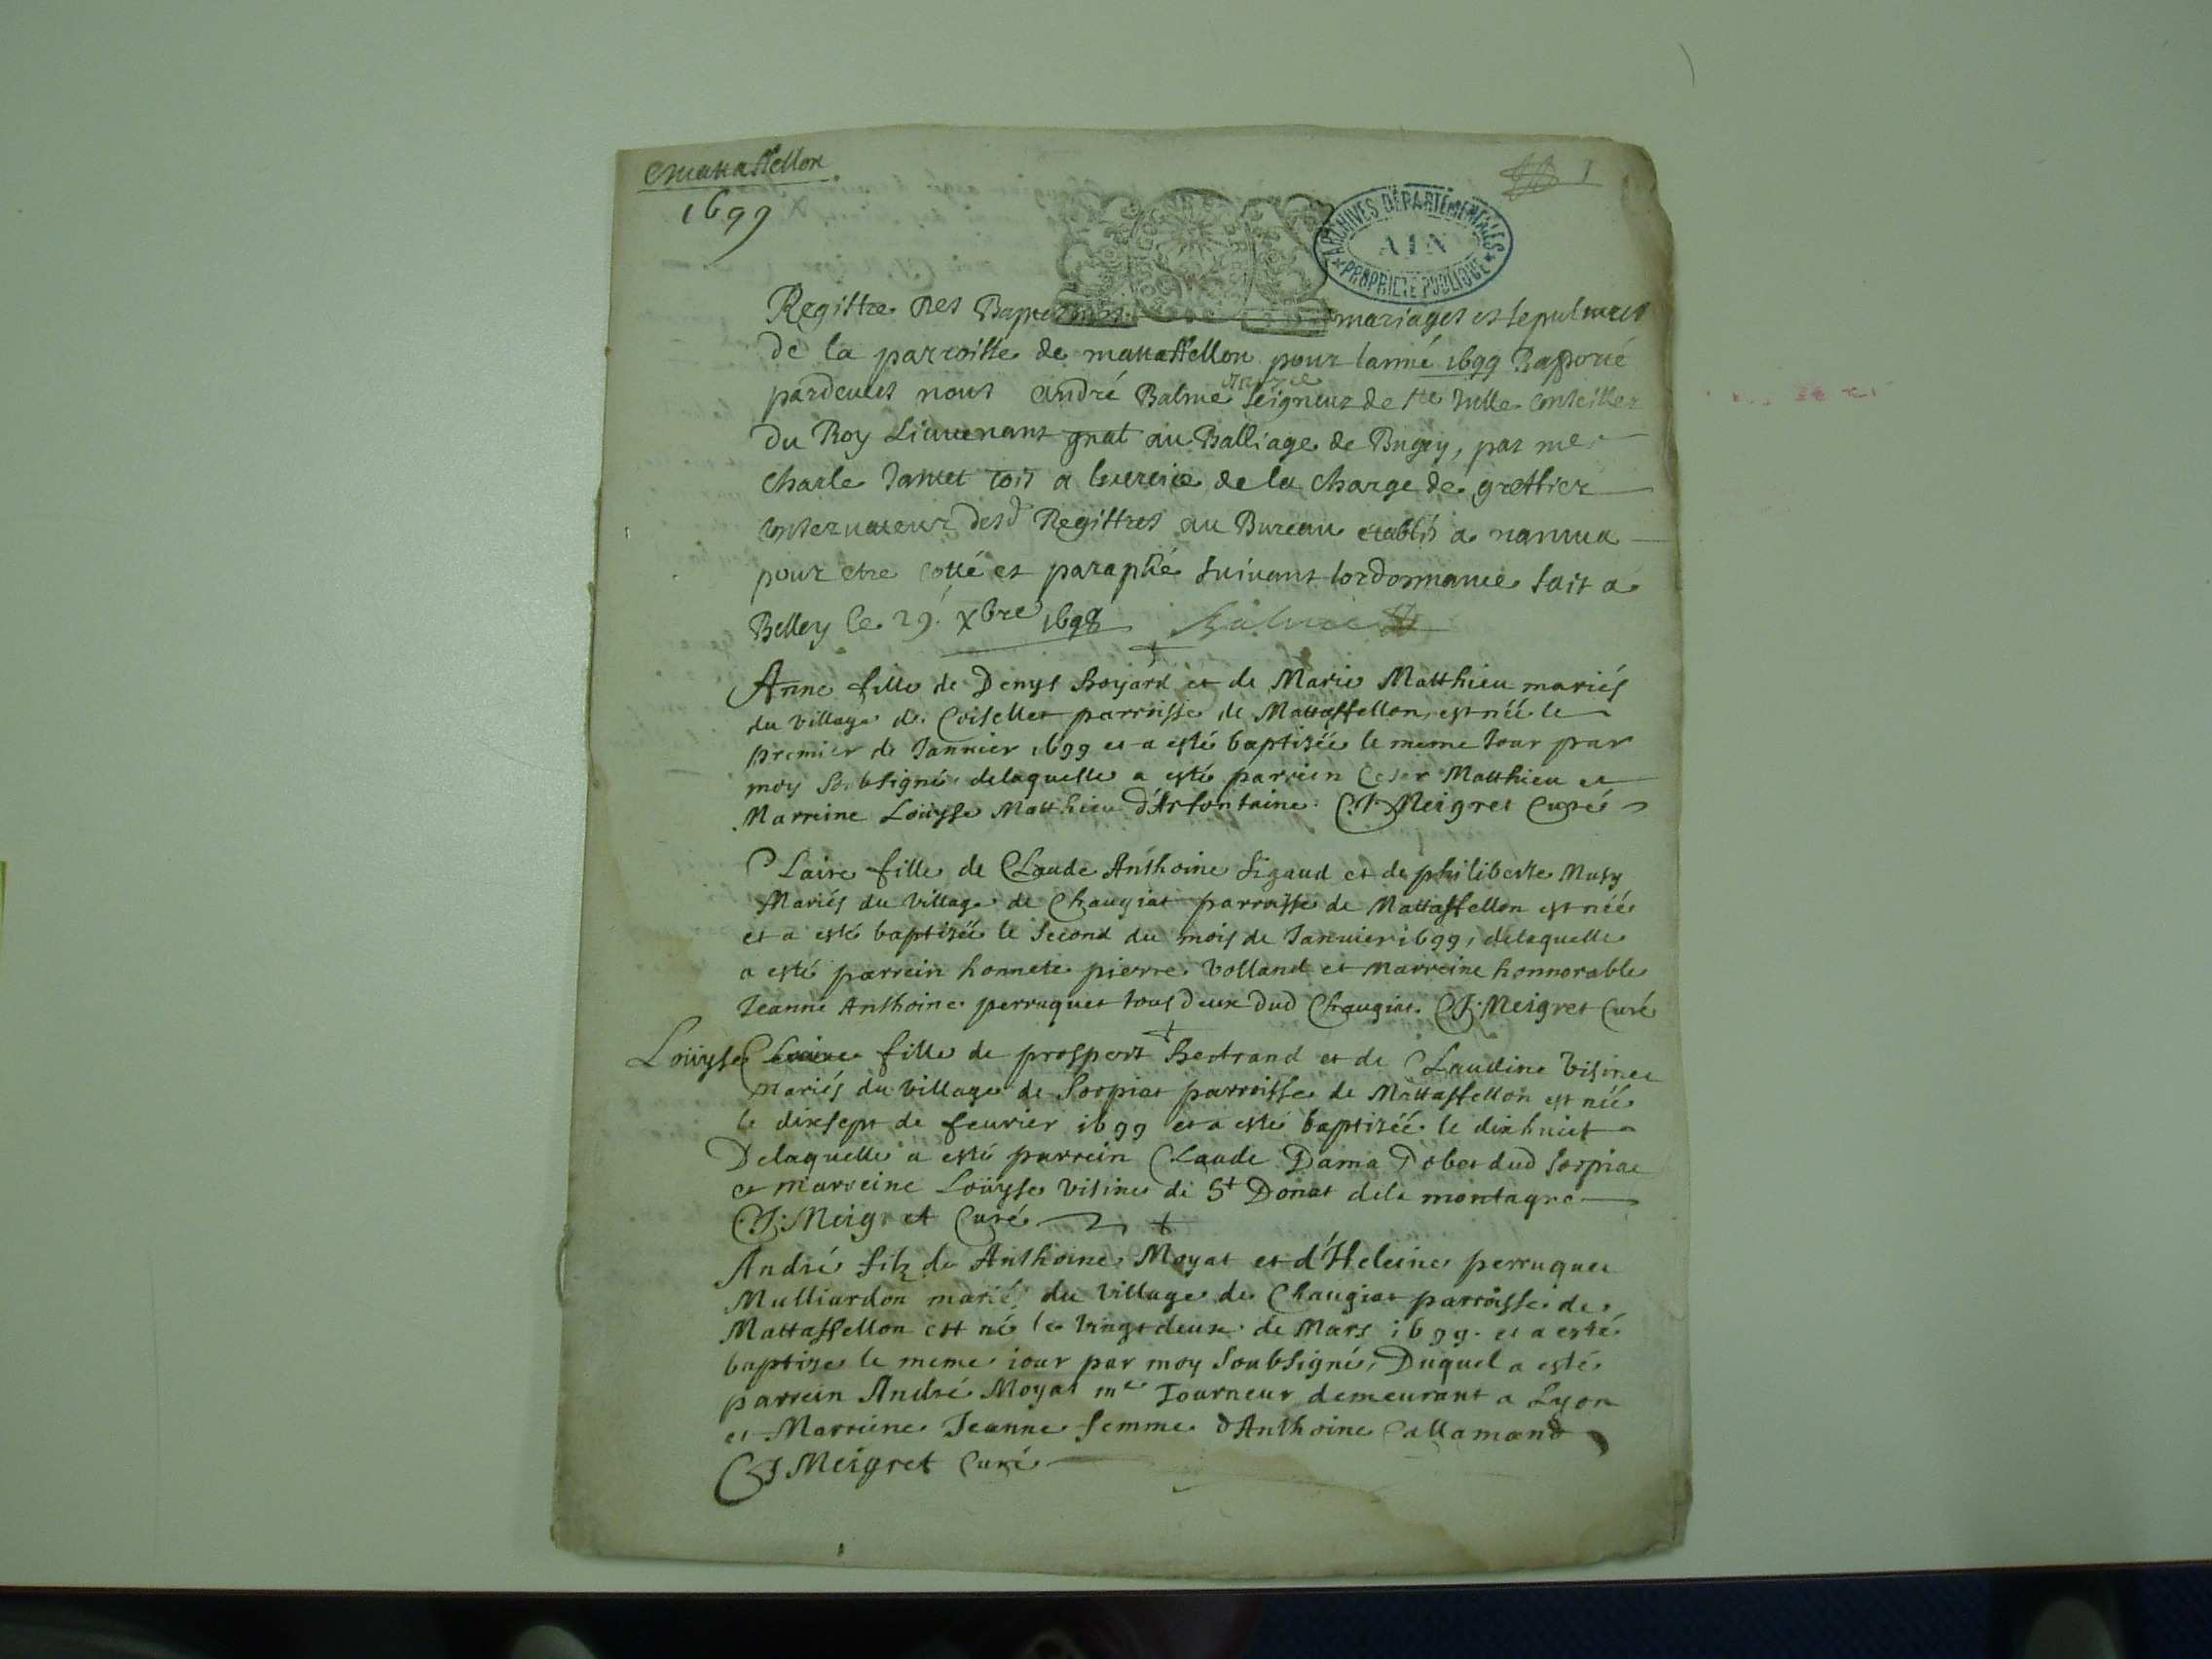 Mattaffellon
1699
1
ARCHIVES DÉPARTEMENTALES
AIN
PROPRIÉTÉ PUBLIQUE
Registre des Baptesmes mariages et sepultures
de la parroisse de mattaffellon pour lanné 1699 Raporté
pardeuet nous andré Balme seigneur de ste Julle conseiller
du Roy Lieutenant gnal au Balliage de Bugey, par me
Charle Jantet à lexercice de la charge de greffier
conseruateur desd Registres au Bureau etablis a nantua
pour etre cotté et paraphé suiuant lordonnance fait a
Belley le 29. xbre 1698 Balme
Anne fille de Denys Boyard et de Marie Matthieu mariés
du village de Coiselet parroisse de Mattaffellon, est néé le
premier de Januier 1699 et a esté baptizéé le meme Jour par
moy Soubsigné delaquelle a esté parrein Cesar Matthieu et
Marreine Loüyse Matthieu d'Arfontaine. C.J. Meigret Curé
Claire fille de Claude Anthoine Sigaud et de philiberte Musy
Mariés du village de Chaugiat parroisse de Mattaffellon est néé
et a esté baptizéé le Second du mois de Januier 1699, delaquelle
a esté parrein honnete pierre Volland et Marreine honnorable
Jeanne Anthoine perruquet tous deux dud Chaugiat. C.J. Meigret Curé
Loüyse Claire fille de prospert Bertrand et de Claudine Visinet
mariés du village de Sorpiat parroisse de Mattaffellon est néé
le dixsept de feurier 1699 et a esté baptizéé le dixhuict
Delaquelle a esté parrein Claude Dama Dobet dud Sorpiat
et marreine Loüyse Visinet de St Donat dela montagne
C.J. Meigret Curé
André filz de Anthoine Moyat et d'Heleine perruquet
Mulliardon mariés du village de Chaugiat parroisse de
Mattaffellon est né le vingtdeux de Mars 1699. et a esté
baptize le meme iour par moy Soubsigné, Duquel a esté
parrein André Moyat me Tourneur demeurant a Lyon
et Marreine Jeanne femme d'Anthoine Callamand
C.J. Meigret Curé